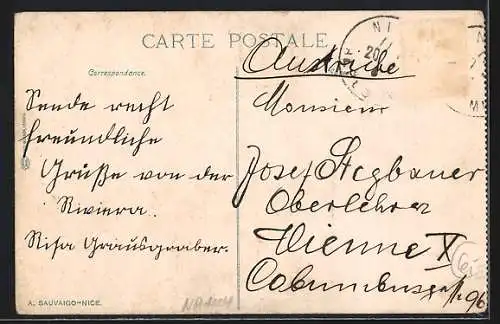 CARTE POSTALE
Correspondance.
Sende recht
freundliche
Grüße von der
Riviera.
Risa Grausgraaber.
A. SAUVAIGO-NICE.
NI
20
Autriche
Monsieur
Josef Stegbauer
Oberlehrer
Vienne X
96